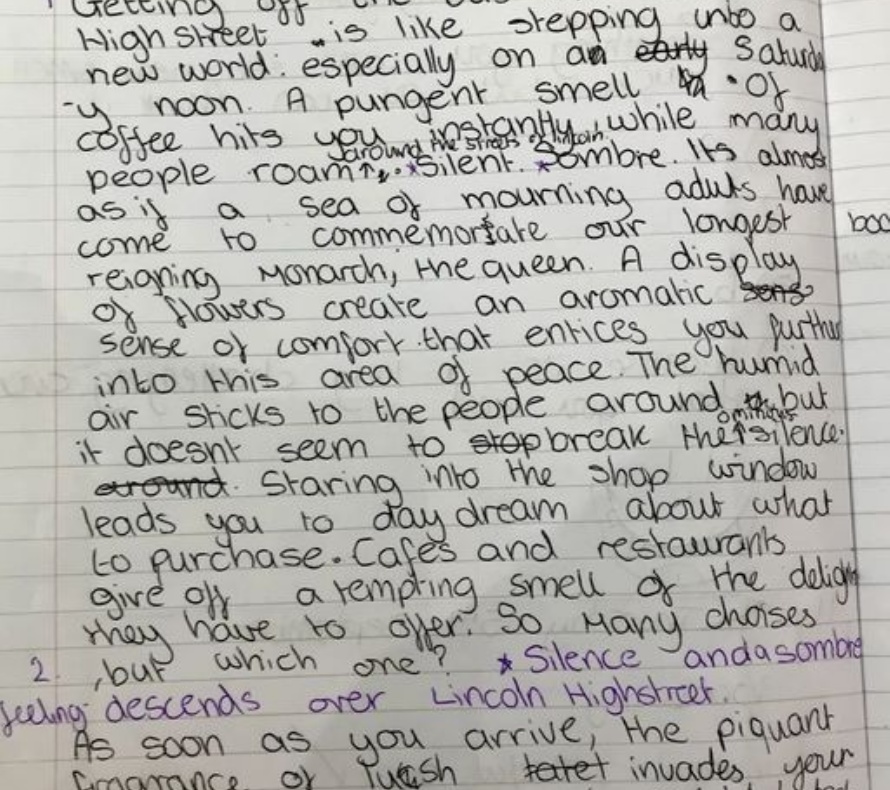 Getting off the
High street is like stepping into a
new world. especially on a early Saturda
-y noon. A pungent smell . Of
coffee hits you instantly, while many
around the streets
people roam. *Silent. *Sombre. Its almost
as if a sea of mourning adults have
come to commemorate our longest
reigning Monarch, the queen. A display
of flowers create an aromatic sens
sense of comfort that entices you further
into this area of peace. The humid
air sticks to the people around but
ominous
it doesnt seem to stop break the silence.
around. Staring into the shop window
leads you to day dream about what
to purchase. Cafes and restaurants
give off a tempting smell of the delight
they have to offer. So Many choises
2. ,but which one? * Silence and a sombre
feeling descends over Lincoln Highstreet.
As soon as you arrive, the piquant
of invades your